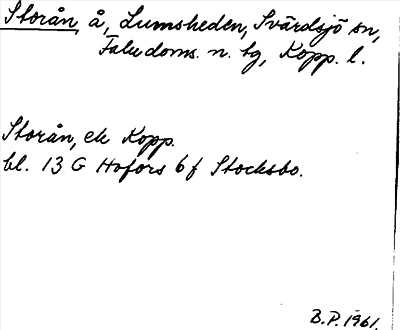 Storån, å, Lumsheden, Svärdsjö sn,
Faludoms. n. tg, Kopp. l.
Storån, ek Kopp.
bl. 13 G Hofors 6 f Stocksbo.
B.P. 1961.